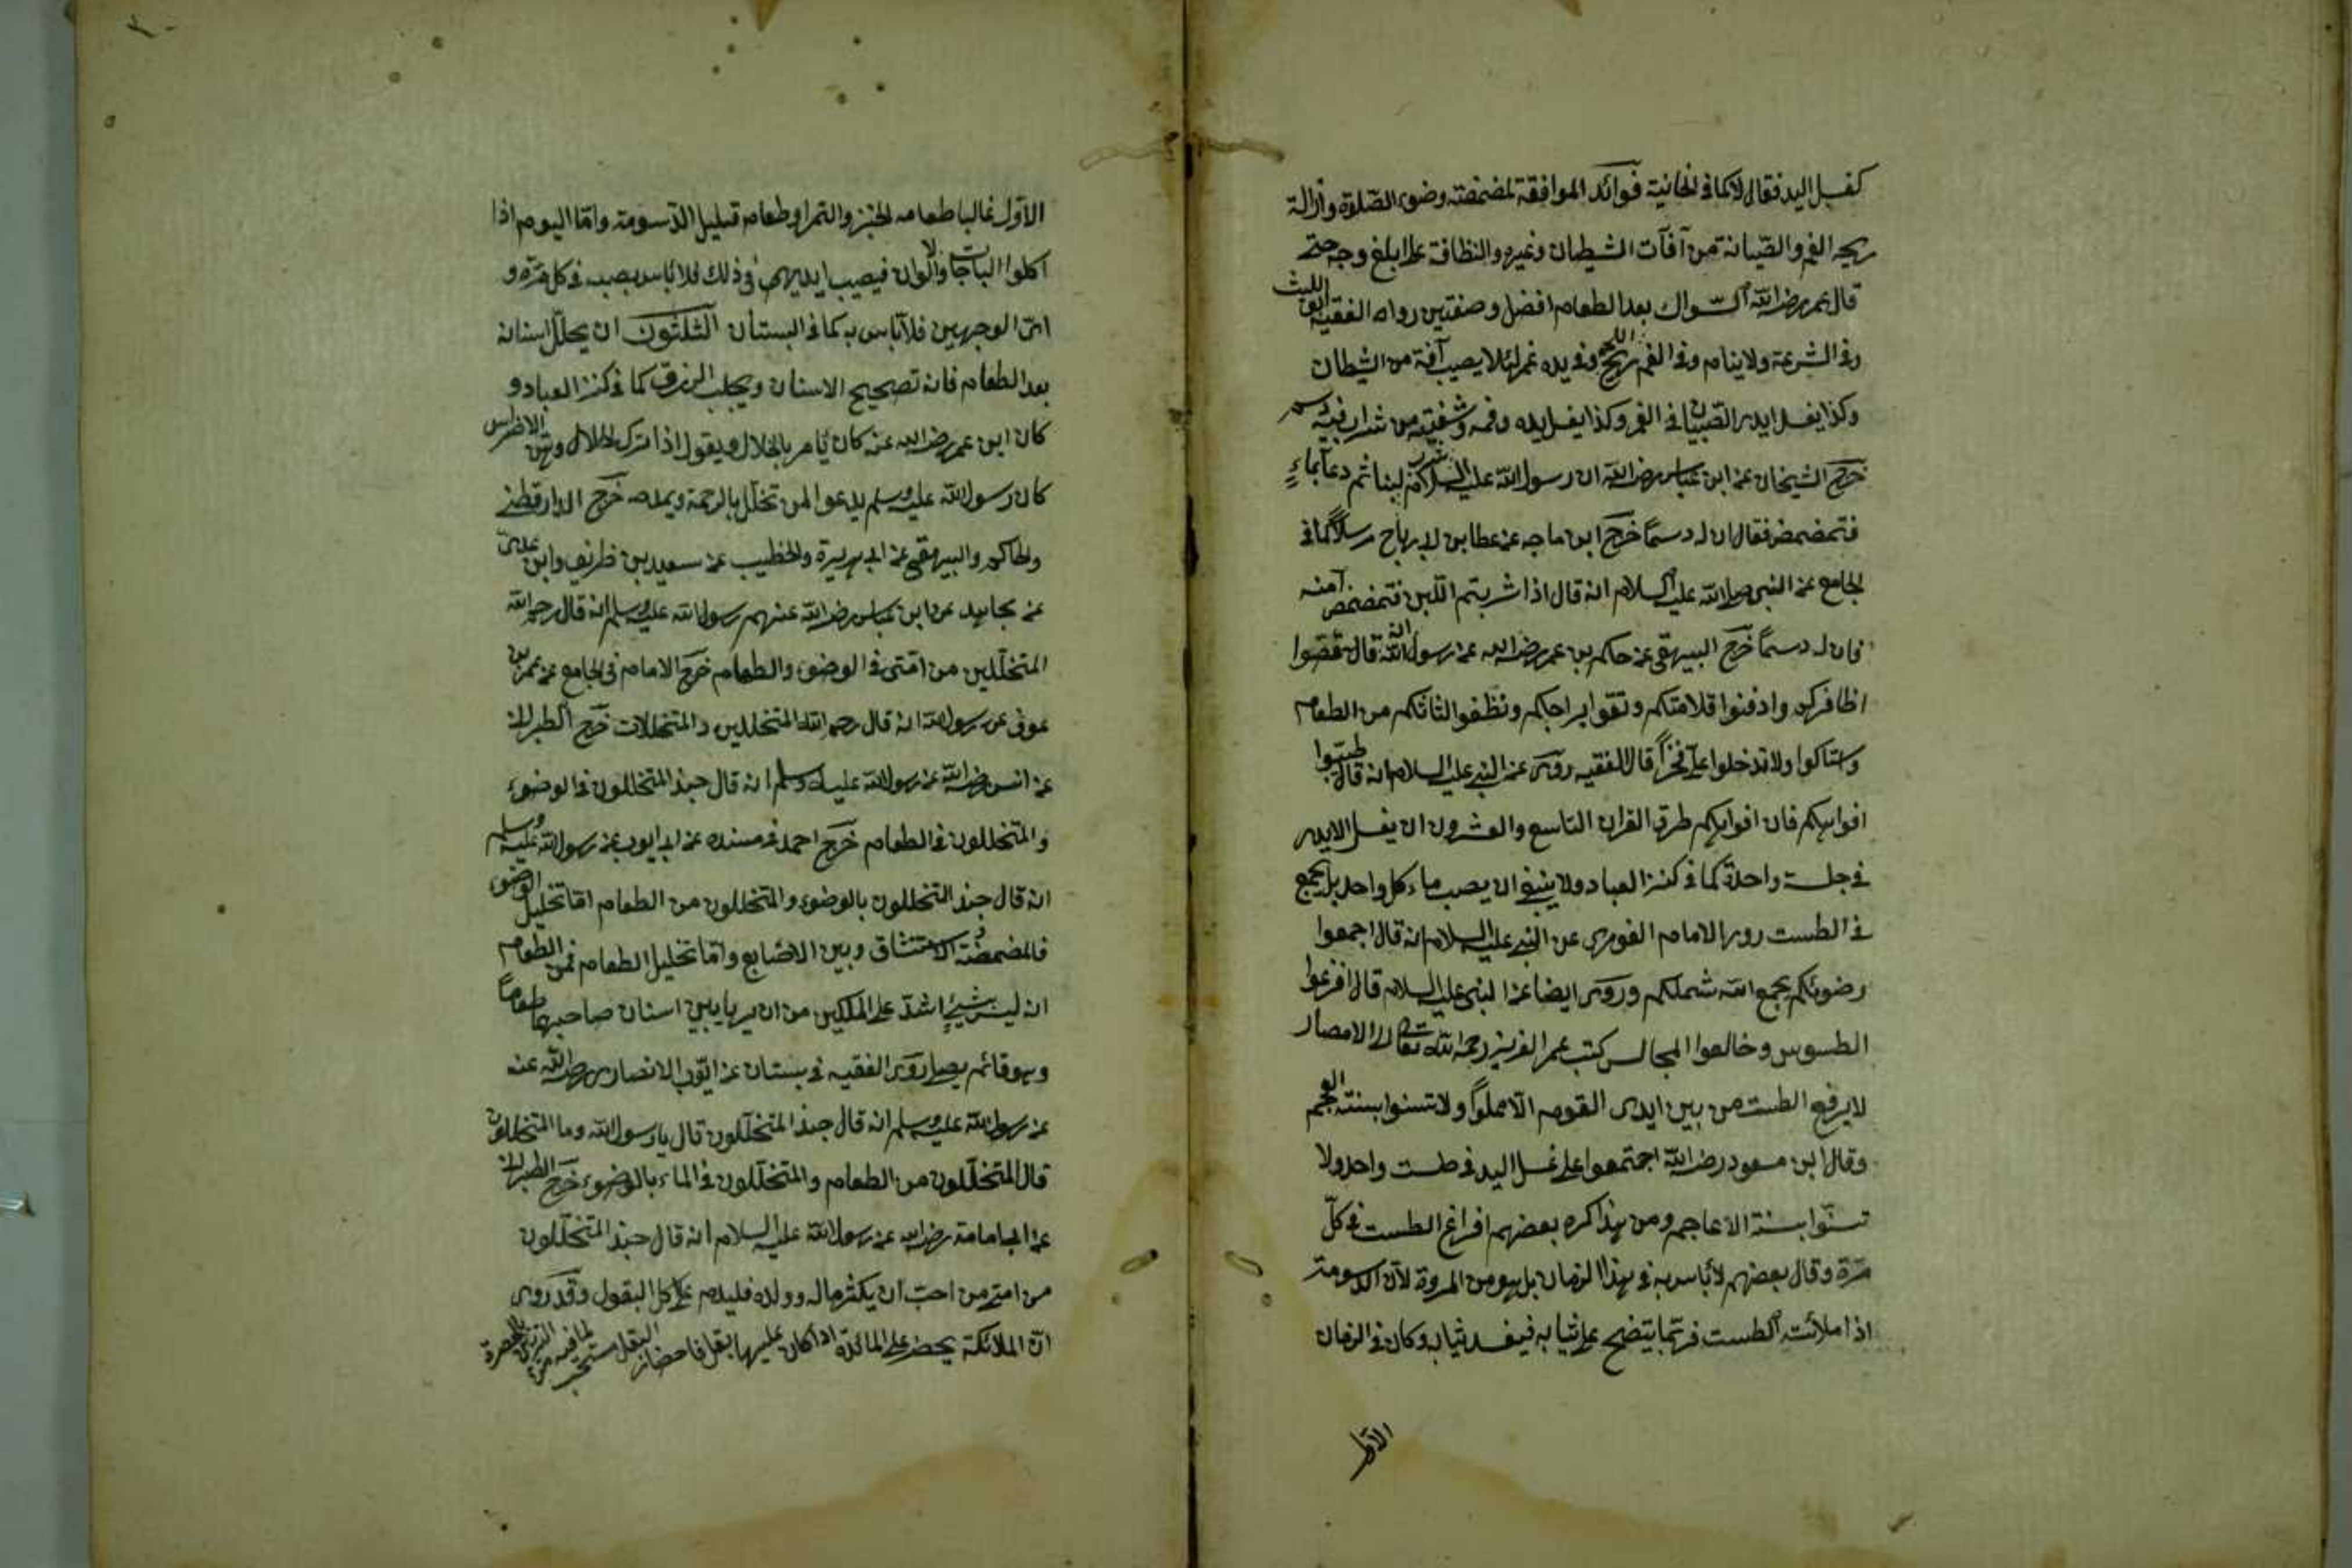 كغسل اليد فقال لا كما في الخانية فوائد الموافقة لمضمضته وضوء الصّلوة وازالة
ريحه الفم والصّيانة من آفات الشيطان وغيره والنظافة على ابلغ وجه حتى
قال عمر رضي الله السّواك بعد الطعام افضل وصفتين رواه الفقيه ابو الليث
وفي الشرعة ولا ينام وفي الفم ريح اللحم وفي يده غمر لئلا يصيب آفة من الشيطان
وكذا يغسل ايدي الصّبيان في الغمر وكذا يغسل يده وفمه وشفتيه من شراب فيه دسم
خرّج الشيخان عن ابن عباس رضي الله ان رسول الله عليه السلام شرب لبنا ثم دعا بماءٍ
فتمضمض فقال ان له دسمًا خرّج ابن ماجه عن عطا بن ابي رباح مرسلاً كما في
الجامع عن النبي صلى الله عليه السلام انه قال اذا شربتم اللّبن فتمضمضوا منه
فان له دسمًا خرّج البيهقي عن حاكم بن عمر رضي الله عن رسول الله انه قال قصّوا
اظافركم وادفنوا قلامتكم ونقوا براجمكم ونظفوا لثاتكم من الطعام
وستاكوا ولا تدخلوا علىّ فخرًا قال الفقيه روى عن النبي عليه السلام انه قال طيّبوا
افواهكم فان افواهكم طرق القران التاسع والعشرون ان يغسل الايدي
في جلسة واحدة كما في كنز العباد ولا ينبغي ان يصب ماء كل واحد بل يجمع
في الطست روى الامام الغوري عن النبي عليه السلام انه قال اجمعوا
وضوئكم يجمع الله شملكم وروى ايضا عن النبي عليه السلام قال افرغوا
الطسوس وخالفوا المجالس كتب عمر العزيز رحمه الله تعالى الى الامصار
لا يرفع الطست من بين ايدى القوم الّا مملوًا ولا تسنوا بسنته العجم
وقال ابن مسعود رضي الله اجتمعوا على غسل اليد في طست واحد ولا
تسنّوا بسنة الاعاجم ومن هذا كره بعضهم افراغ الطست في كلّ
مرّة وقال بعضهم لا بأس به في هذا الزمان بل هو من المروة لانّ الدسومة
اذا ملأت الطست فربّما يتضح على ثيابه فيفسد ثيابه وكان في الزمان
الاول
الاوّل غالبا طعامه الخبز والتمر او طعام قليل الدّسومة وامّا اليوم اذا
اكلوا الباجات والالوان فيصيب ايديهم في ذلك فلا بأس بصبه في كل مرّة و
اىّ الوجهين فلا بأس به كما في البستان الثلثون ان يخلّل اسنانه
بعد الطعام فانه تصحيح الاسنان ويجلب الرزق كما في كنز العباد و
كان ابن عمر رضي الله عنه كان يأمر بالخلال ويقول اذا ترك الخلال وهن الاضراس
كان رسول الله عليه وسلم يدعو المن تخلّل بالرحمة ويمدحه خرّج الدار قطني
والحاكم والبيهقي عن ابي هريرة والخطيب عن سعيد بن ظريف وابن عدى
عن مجاهد عن ابن عباس رضي الله عنهم رسول الله عليه وسلم انه قال رحم الله
المتخلّلين من امّتى في الوضوء والطعام خرّج الامام في الجامع عن عمر بن
عوفى عن رسول الله انه قال رحم الله المتخللين والمتخللات خرّج الطبراني
عن انس رضي الله عن رسول الله عليه وسلم انه قال حبذ المتخللون في الوضوء
والمتخللون في الطعام خرّج احمد في مسنده عن ابي ايوب عن رسول الله عليه وسلم
انه قال حبذ المتخللون بالوضوء والمتخللون من الطعام امّا تخليل الوضوء
فالمضمضة والاستنشاق وبين الاصابع وامّا تخليل الطعام فمن الطعام
انه ليس شيءٌ اشدّ على الملكين من ان يريا بين اسنان صاحبهما طعامًا
وهو قائم يصلي روى الفقيه في بستان عن ايّوب الانصاري رضي الله عنه
عن رسول الله عليه وسلم انه قال حبذ المتخلّلون قال يا رسول الله وما المتخللون
قال المتخلّلون من الطعام والمتخلّلون في الماء بالوضوء خرّج الطبراني
عن ابي امامة رضي الله عن رسول الله عليه السلام انه قال حبذ المتخلّلون
من امتى من احبّ ان يكثر ماله وولده فليدم على اكل البقول وقد روى
انّ الملائكة يحضر على المائدة اذا كان عليها بقل فاحضار البقل مستحب لما فيه من التزيين بالخضرة